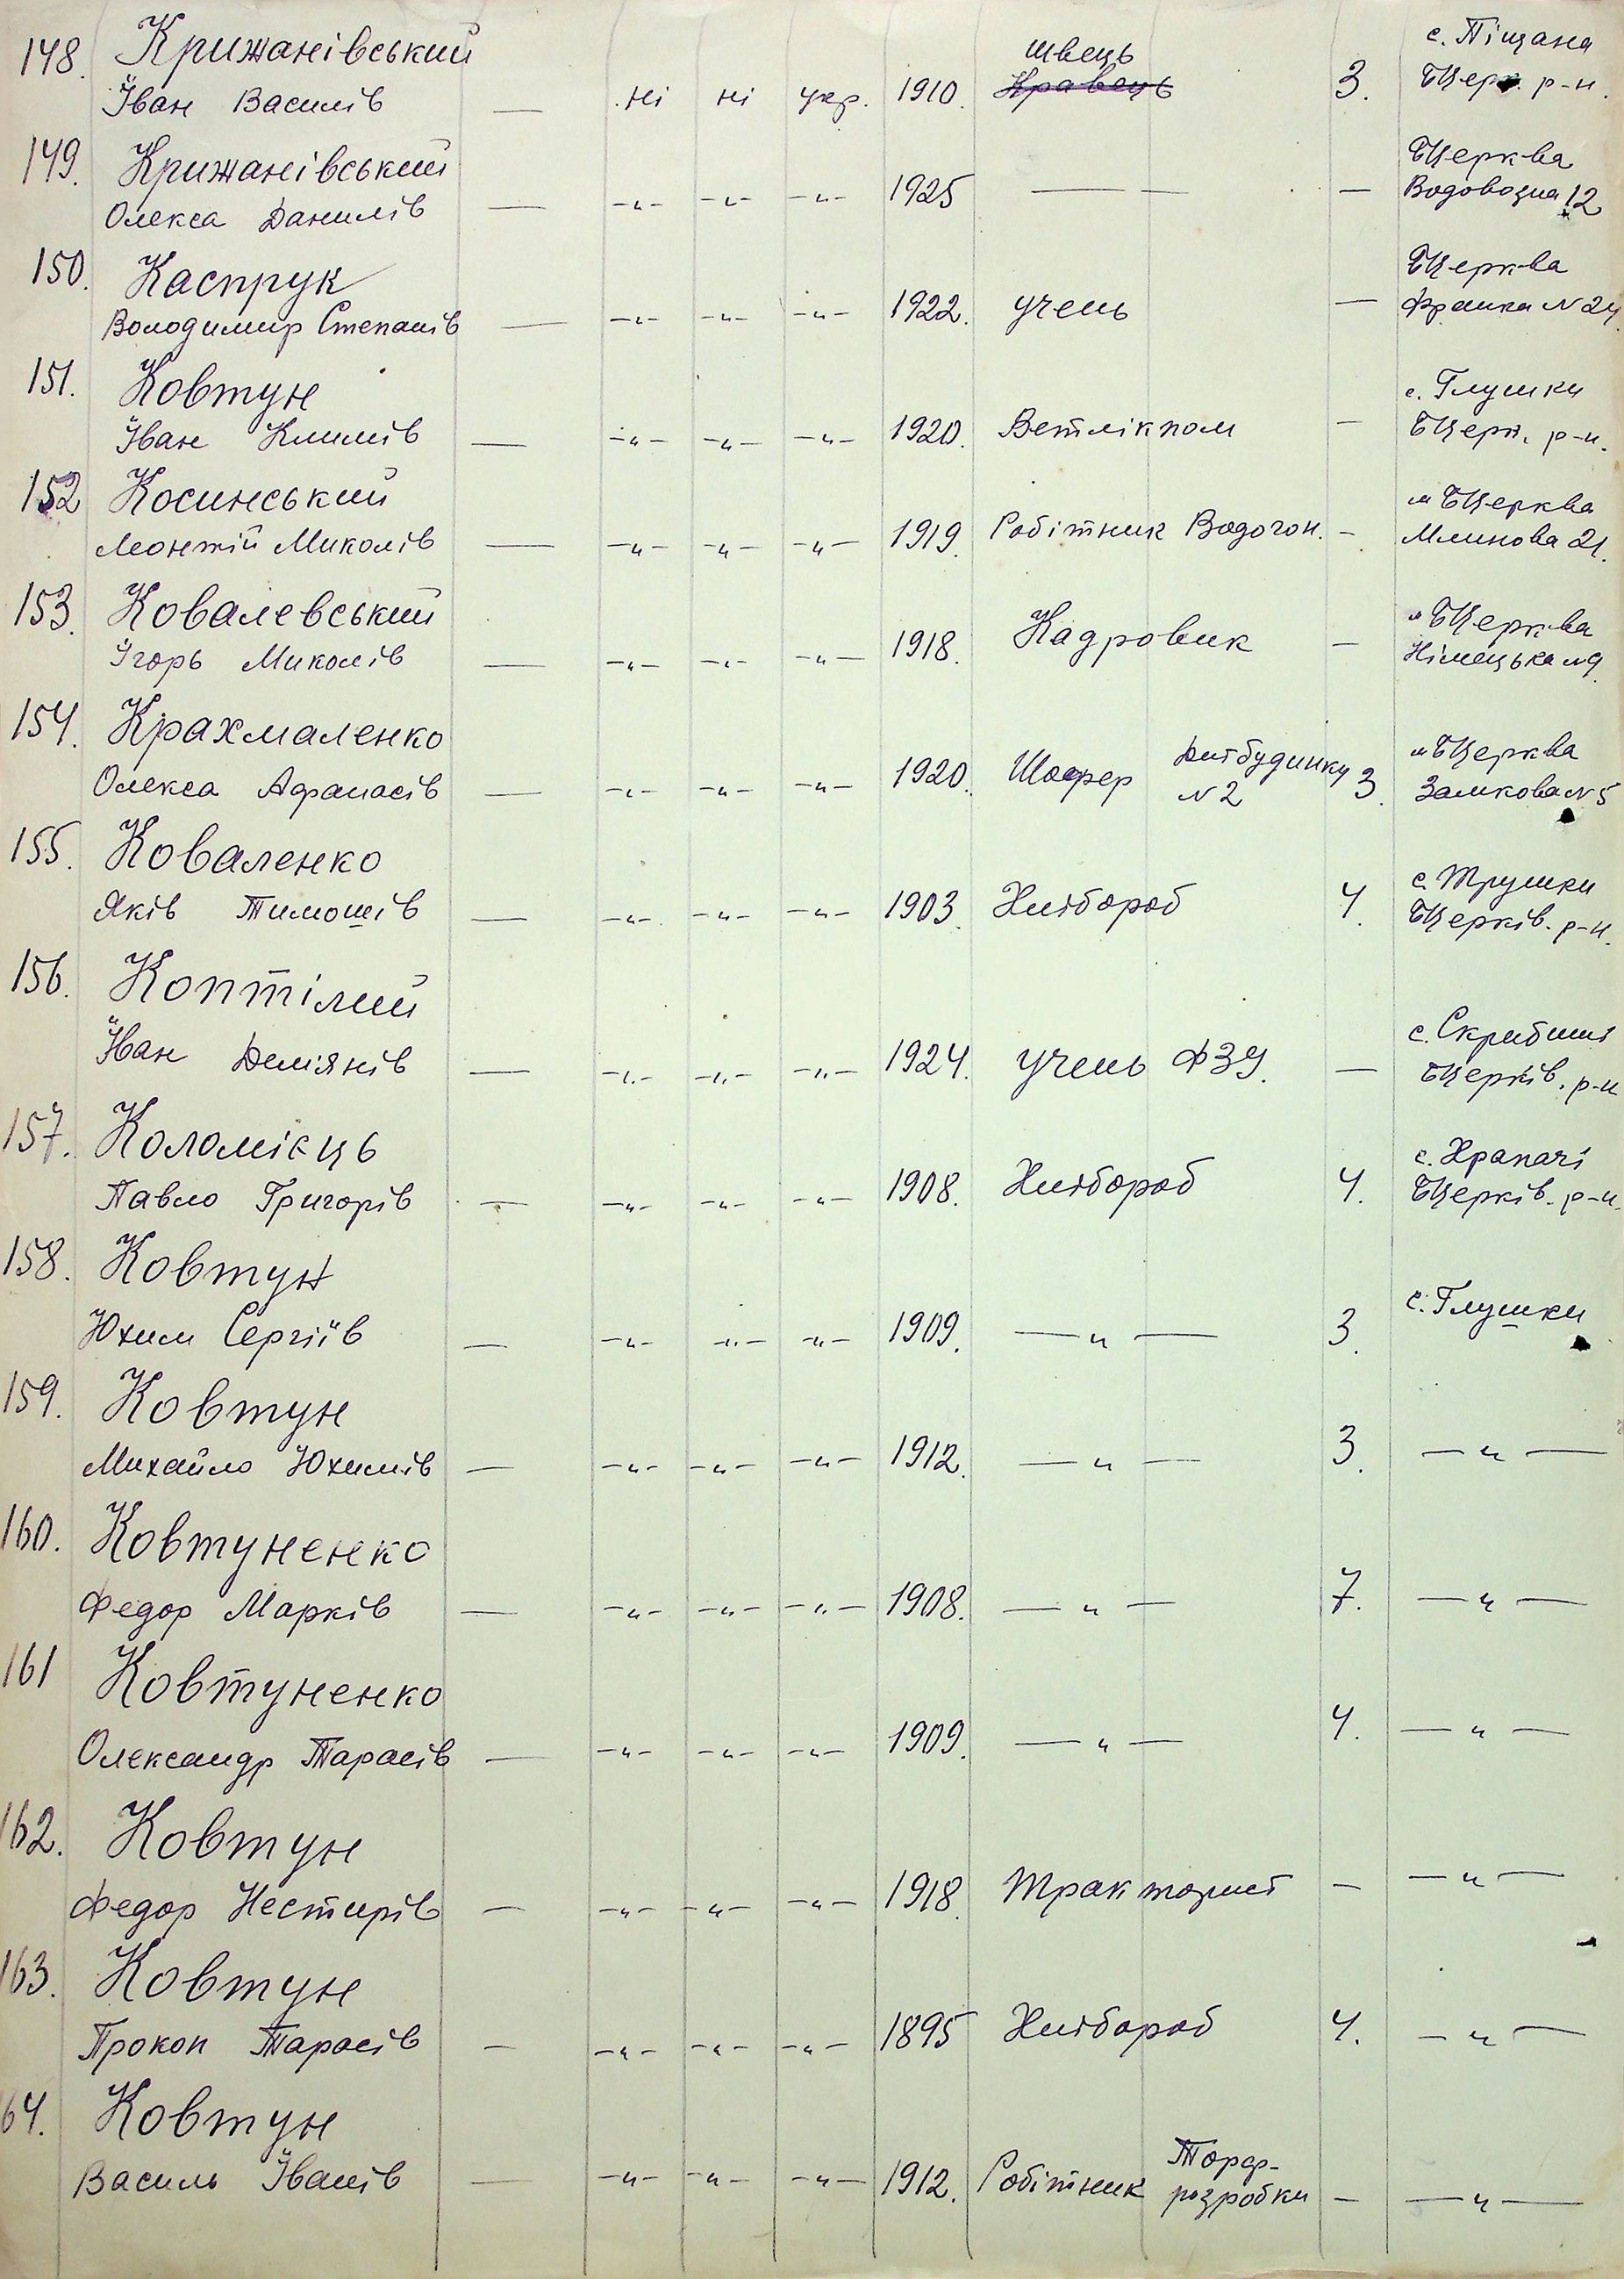 148. Крижанівський швець с. Піщана
Іван Василів — ні ні укр. 1910. Кравець 3. БЦерк. р-н.
149. Крижанівський БЦерква
Олекса Данилів — -„- -„- -„- 1925 — — — Водовозна 12
150. Каспрук БЦерква
Володимир Степанів — -„- -„- -„- 1922. учень — Франка N 24.
151. Ковтун с. Глушки
Іван Климів — -„- -„- -„- 1920. Ветлікпом - БЦерк. р-н.
152 Косинський м БЦерква
Леонтій Миколів — -„- -„- -„- 1919. Робітник Водогон. - Млинова 21.
153. Ковалевський м БЦерква
Ігорь Миколів — -„- -„- -„- 1918. Кадровик — Німецька N9.
154. Крахмаленко Дитбудинку м БЦерква
Олекса Афанасів — -„- -„- -„- 1920. Шофер N 2 3. Замкова N 5
155. Коваленко с. Трушки
Яків Тимошів — -„- -„- -„- 1903. Хлібороб 4. БЦерків. р-н.
156. Коптілий с. Скребиші
Іван Демянів — -„- -„- -„- 1924. учень ФЗУ. — БЦерків. р-н
157. Коломієць с. Храпачі
Павло Григорів — -„- -„- -„- 1908. Хлібороб 4. БЦерків. р-н.
158. Ковтун с. Глушки
Юхим Сергіїв — -„- -„- -„- 1909. — „ — 3.
159. Ковтун
Михайло Юхимів — -„- -„- -„- 1912. — „ — 3. — „ —
160. Ковтуненко
Федор Марків — -„- -„- -„- 1908. — „ — 7. — „ —
161 Ковтуненко
Олександр Тарасів — -„- -„- -„- 1909. — „ — 4. — „ —
162. Ковтун
Федор Нестирів — -„- -„- -„- 1918. Тракторист — — „ —
163. Ковтун
Прокоп Тарасів — -„- -„- -„- 1895 Хлібороб 4. — „ —
64. Ковтун Торф-
Василь Іванів — -„- -„- -„- 1912. Робітник розробки — — „ —